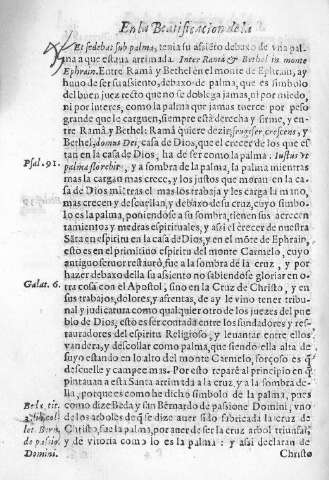 En la Beatificacion de la
Et sedebat sub palma, tenia su assiẽto debaxo de vna pal
ma a que estaua arrimada. Inter Ramà & Bethel in monte
Ephrain. Entre Ramà y Bethèl en el monte de Ephrain, ay
vno de ser su assiento, debaxo de palma, que es simbolo
del buen juez recto que no se doblega jamas, ni por miedo,
ni por interes, como la palma que jamas tuerce por peso
grande que le carguen, siempre esta derecha y firme, y en
tre Ramà y Bethel: Ramà quiere dezir, surgeser, crescens, y
Bethel, domus Dei, casa de Dios, que el crecer de los que es
Psal. 91. tan en la casa de Dios, ha de ser como la palma: Iustus vt
palma florebit, y a sombra de la palma, la palma mientras
mas la cargan mas crece, y los justos que moran en la ca
sa de Dios mientras el mas los trabaja y les carga la mano,
mas crecen y descuellan, y debaxo de su cruz, cuyo simbo
lo es la palma, poniendose a su sombra, tienen sus acrecen
tamientos y medras espirituales, y assi el crecer de nuestra
Sãta en espiritu en la casa de Dios, y en el mõte de Ephrain,
esto es en el primitiuo espiritu del monte Carmelo, cuyo
antiguo feruor restaurò, fue a la sombra de la cruz, y por
hazer debaxo della su assiento no sabiendose gloriar en o-
Galat. 6. tra cosa con el Apostol, sino en la Cruz de Christo, y en
sus trabajos, dolores, y afrentas, de ay le vino tener tribu-
nal y judicatura como qualquier otro de los juezes del pue
blo de Dios, esto es ser contada entre los fundadores y res-
tauradores del espiritu Religioso, y leuantar entre ellos
vandera, y descollar como palma, que siendo ella alta de
suyo estando en lo alto del monte Carmelo, forçoso es q̃
descuelle y campee mas. Por esto reparè al principio en q̃
pintauan a esta Santa arrimada a la cruz, y a la sombra de-
lla, porque es como he dicho simbolo de la palma, pues
como dize Beda y san Bernardo de passione Domini, vno
de los arboles de q̃ se dize auer sido fabricada la cruz de
Christo, fue la palma, por auer de ser la cruz arbol triunfal,
de passiõ y de vitoria como lo es la palma: y assi declaran de
Domini. Christo